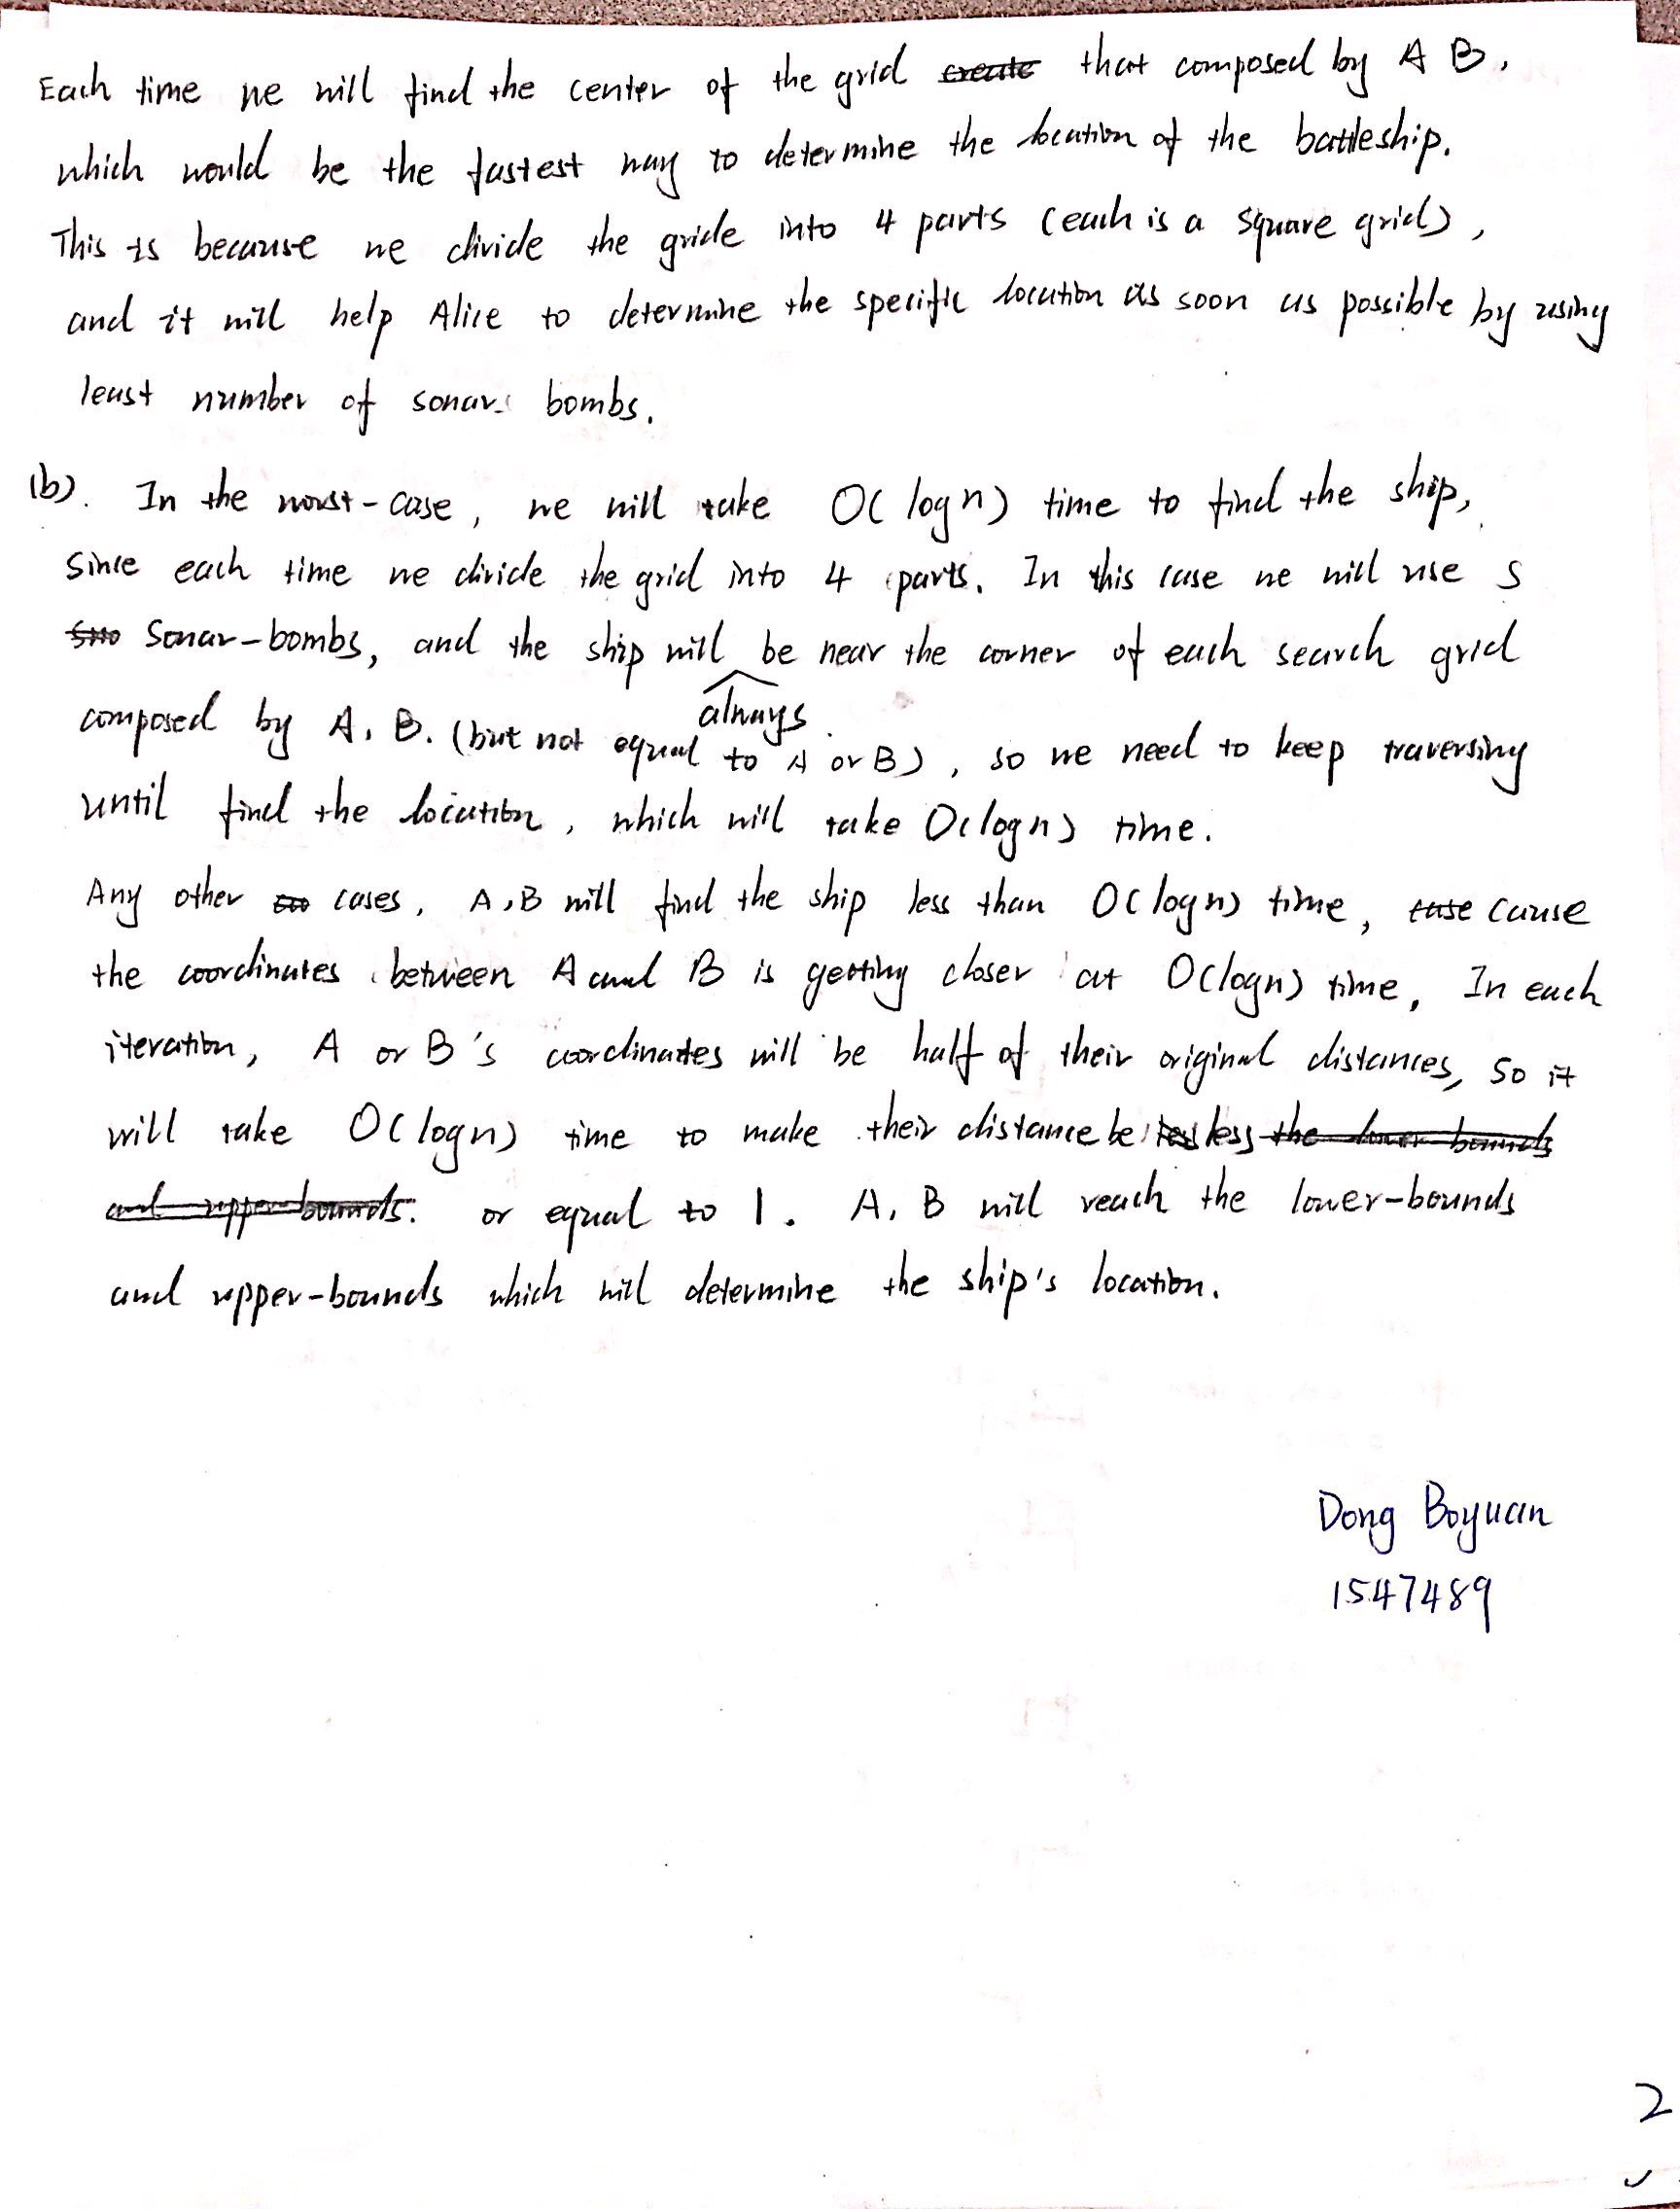 Each time we will find the center of the grid create that composed by A B,
which would be the fastest way to determine the location of the battleship.
This is because we divide the gride into 4 parts (each is a square grid),
and it will help Alice to determine the specific location as soon as possible by using
least number of sonar bombs.
(b). In the worst-case, we will take O(logn) time to find the ship,
since each time we divide the grid into 4 parts. In this case we will use S
Sonar-bombs, and the ship will be near the corner of each search grid
always
composed by A, B. (but not equal to A or B), so we need to keep traversing
until find the location, which will take O(logn) time.
Any other cases, A,B will find the ship less than O(logn) time, case cause
the coordinates between A and B is getting closer at O(logn) time, In each
iteration, A or B's coordinates will be half of their original distances, so it
will take O(logn) time to make their distance be less less the lower bounds
and upper bounds. or equal to 1. A, B will reach the lower-bounds
and upper-bounds which will determine the ship's location.
Dong Boyuan
1547489
2